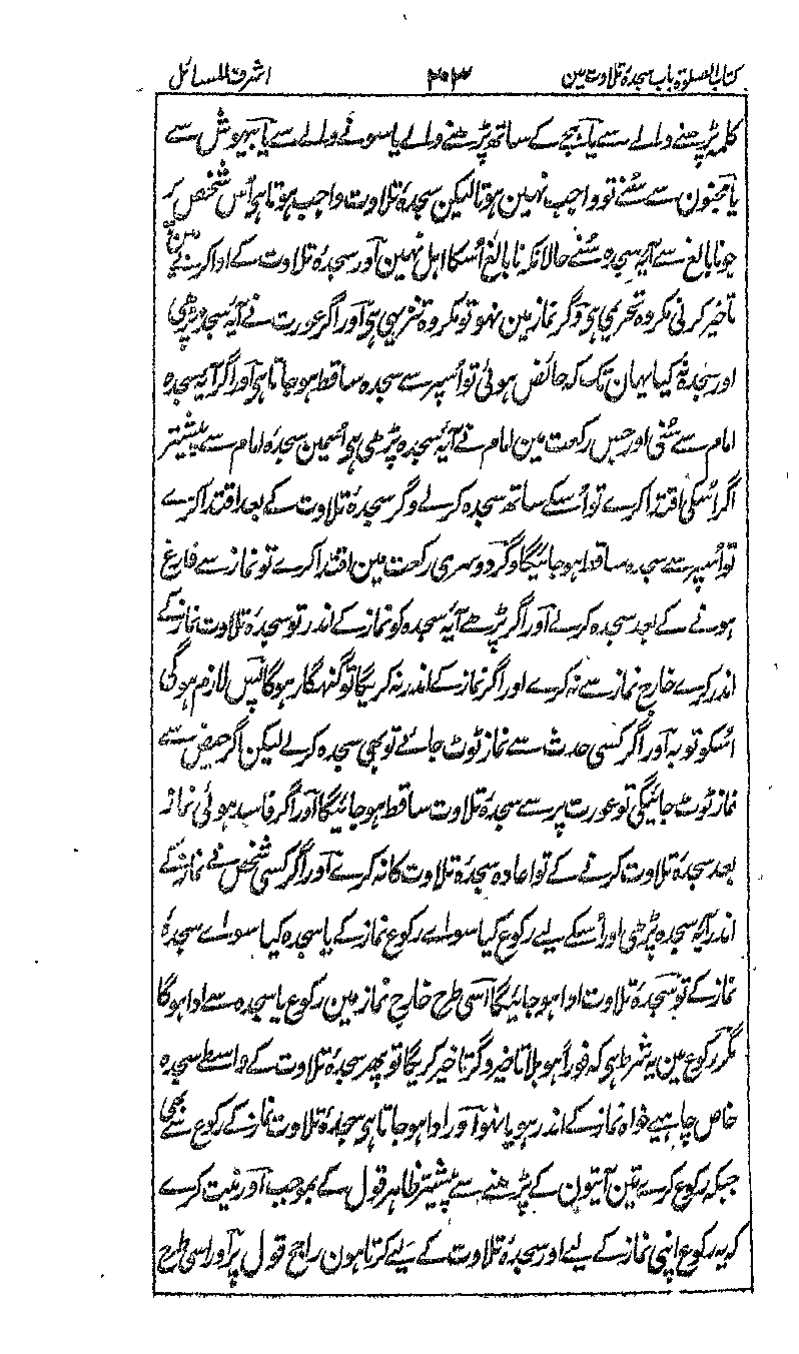 کتاب الصلوۃ باب سجدۂ تلاوت مین
۲۰۳
اشرف المسائل
کلمہ پڑھنے والے سے یا ہجے کے ساتھ پڑھنے والے یا سونے والے سے یا بیہوش سے
یا مجنون سے سُنے تو واجب نہین ہوتا لیکن سجدۂ تلاوت واجب ہوتا ہی اُس شخص پر
جو نابالغ سے آیۂ سجدہ سُنے حالانکہ نابالغ اُسکا اہل نہین اور سجدۂ تلاوت کے ادا کرنے مین
تاخیر کرنی مکروہ تحریمی ہی وگر نماز مین نہو تو مکروہ تنزیہی ہی اور اگر عورت نے آیۂ سجدہ پڑھی
اور سجدہ نہ کیا یہان تک کہ حائض ہوئی تو اُسپر سے سجدہ ساقط ہو جاتا ہی اور اگر آیۂ سجدہ
امام سے سُنی اور جس رکعت مین امام نے آیۂ سجدہ پڑھی ہی اُسمین سجدۂ امام سے پیشتر
اگر اُسکی اقتدا کرے تو اُسکے ساتھ سجدہ کرلے وگر سجدۂ تلاوت کے بعد اقتدا کرے
تو اُسپر سے سجدہ ساقط ہو جائیگا وگر دوسری رکعت مین اقتدا کرے تو نماز سے فارغ
ہونے کے بعد سجدہ کرلے اور اگر پڑھے آیۂ سجدہ کو نماز کے اندر تو سجدۂ تلاوت نماز کے
اندر کرے خارج نماز سے نہ کرے اور اگر نماز کے اندر نہ کریگا تو گنہگار ہوگا پس لازم ہوگی
اُسکو توبہ اور اگر کسی حدث سے نماز ٹوٹ جائے تو بھی سجدہ کرلے لیکن اگر حیض سے
نماز ٹوٹ جائیگی تو عورت پر سے سجدۂ تلاوت ساقط ہو جائیگا اور اگر فاسد ہوئی نماز
بعد سجدۂ تلاوت کرنے کے تو اعادہ سجدۂ تلاوت کا نہ کرے اور اگر کسی شخص نے نماز کے
اندر آیۂ سجدہ پڑھی اور اُسکے لیے رکوع کیا سواے رکوع نماز کے یا سجدہ کیا سواے سجدۂ
نماز کے تو سجدۂ تلاوت ادا ہو جائیگا اسی طرح خارج نماز مین رکوع یا سجدہ سے ادا ہوگا
مگر رکوع مین یہ شرط ہی کہ فوراً ہو بلا تاخیر وگر تاخیر کریگا تو پھر سجدۂ تلاوت کے واسطے سجدہ
خاص چاہیے خواہ نماز کے اندر ہو یا نہو اور ادا ہو جاتا ہی سجدۂ تلاوت نماز کے رکوع سے بھی
جبکہ رکوع کرے تین آیتون کے پڑھنے سے پیشتر ظاہر قول کے بموجب اور نیت کرے
کہ یہ رکوع اپنی نماز کے لیے اور سجدۂ تلاوت کے لیے کرتا ہون راجح قول پر اور اسی طرح